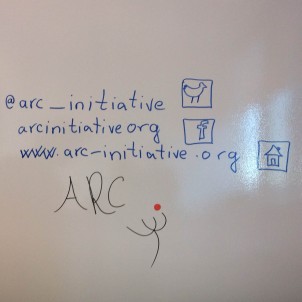 @arc_initiative
arcinitiativeorg
www.arc-initiative.org
ARC